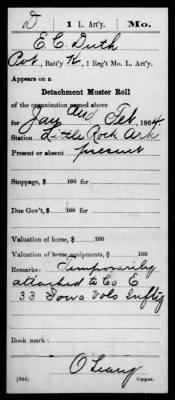 D | 1 L. Art'y. | Mo.
E. C. Duth
Pvt, Batt'y K, 1 Reg't Mo. L. Art'y.
Appears on a
Detachment Muster Roll
of the organization named above
for Jan and Feb, 1864.
Station Little Rock Ark
Present or absent present
Stoppage, $ 100 for
Due Gov't, $ 100 for
Valuation of horse, $ 100
Valuation of horse equipments, $ 100
Remarks: Temporarily
attached to Co E
33 Iowa Vols Inftry
Book mark:
O'Leary
(358) Copyist.